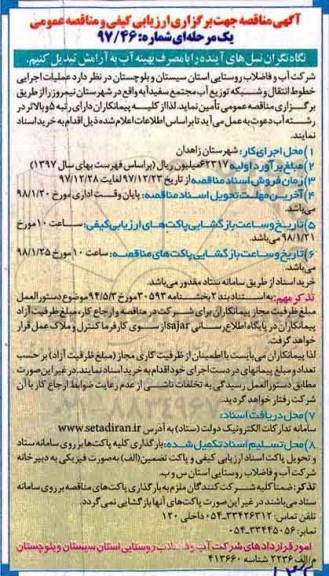 آگهی مناقصه جهت برگزاری ارزیابی کیفی و مناقصه عمومی
یک مرحله‌ای شماره: 97/46
نگاه نگران نسل های آینده را با مصرف بهینه آب به آرامش تبدیل کنیم.
شرکت آب و فاضلاب روستایی استان سیستان و بلوچستان در نظر دارد عملیات اجرایی
خطوط انتقال و شبکه توزیع آب مجتمع سفیدآبه واقع در شهرستان نیمروز را از طریق
برگزاری مناقصه عمومی تأمین نماید. لذا از کلیه پیمانکاران دارای رتبه 5 و بالاتر در
رشته آب دعوت به عمل می آید تا بر اساس اطلاعات اعلام شده ذیل اقدام به خرید اسناد
نمایند.
1) محل اجرای کار: شهرستان زاهدان
2) مبلغ برآورد اولیه 62317 میلیون ریال (بر اساس فهرست بهای سال 1397)
3) زمان فروش اسناد مناقصه: از تاریخ 97/12/23 لغایت 97/12/28
4) آخرین مهلت تحویل اسناد مناقصه: پایان وقت اداری مورخ 98/1/20
می‌باشد.
5) تاریخ و ساعت بازگشایی پاکت های ارزیابی کیفی: ساعت 10 مورخ
98/1/21 می باشد.
6) تاریخ و ساعت بازگشایی پاکت های مناقصه: ساعت 10 مورخ 98/1/25
می‌باشد.
خرید اسناد از طریق سامانه ستاد مقدور می باشد.
تذکر مهم: به استناد بند 2 بخشنامه 30593 مورخ 94/5/3 موضوع دستورالعمل
مبلغ ظرفیت مجاز پیمانکاران برای شرکت در مناقصه و ارجاع کار، مبلغ ظرفیت آزاد
پیمانکاران در پایگاه اطلاع رسانی sajar از سوی کارفرما کنترل و ملاک عمل قرار
خواهد گرفت.
لذا پیمانکاران می بایست با اطمینان از ظرفیت کاری مجاز (مبلغ ظرفیت آزاد) بر حسب
تعداد و مبلغ پیمانهای در دست اجرای خود اقدام به خرید اسناد نمایند. در غیر این صورت
مطابق دستورالعمل رسیدگی به تخلفات ناشی از عدم رعایت ضوابط ارجاع کار با آن
شرکت رفتار خواهد گردید.
7) محل دریافت اسناد:
سامانه تدارکات الکترونیک دولت (ستاد) به آدرس www.setadiran.ir
8) محل تسلیم اسناد تکمیل شده: بارگذاری کلیه پاکت ها بر روی سامانه ستاد
و تحویل پاکت اسناد ارزیابی کیفی و پاکت تضمین (الف) به صورت فیزیکی به دبیرخانه
شرکت آب و فاضلاب روستایی استان س و ب.
تذکر: ضمناً کلیه شرکت کنندگان ملزم به بارگذاری پاکت های مناقصه بر روی سامانه
ستاد می باشند در غیر این صورت پاکت های آنها بازگشایی نمی گردد.
تلفن تماس: 33426312-054 داخلی 120
نمابر: 33445056-054
امور قراردادهای شرکت آب و فاضلاب روستایی استان سیستان و بلوچستان
م/الف 2236 شناسه 413660